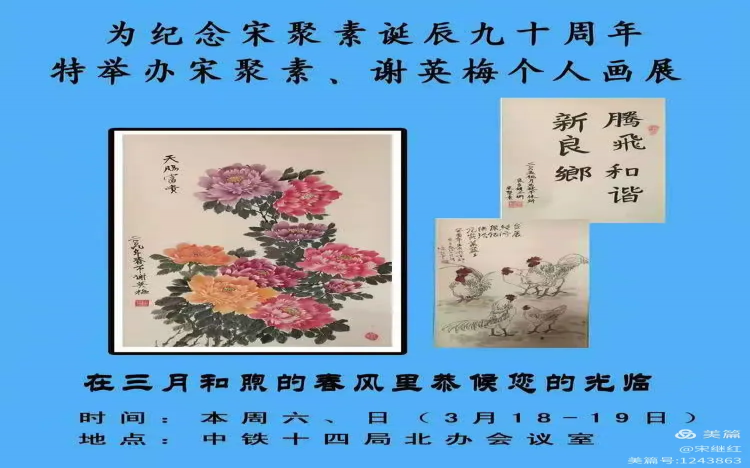 为纪念宋聚素诞辰九十周年
特举办宋聚素、谢英梅个人画展
天赐富贵
谢英梅
腾飞和谐
新良鄉
在三月和煦的春风里恭候您的光临
时间：本周六、日（3月18-19日）
地点：中铁十四局北办会议室
美篇
@宋继红
美篇号:1243863